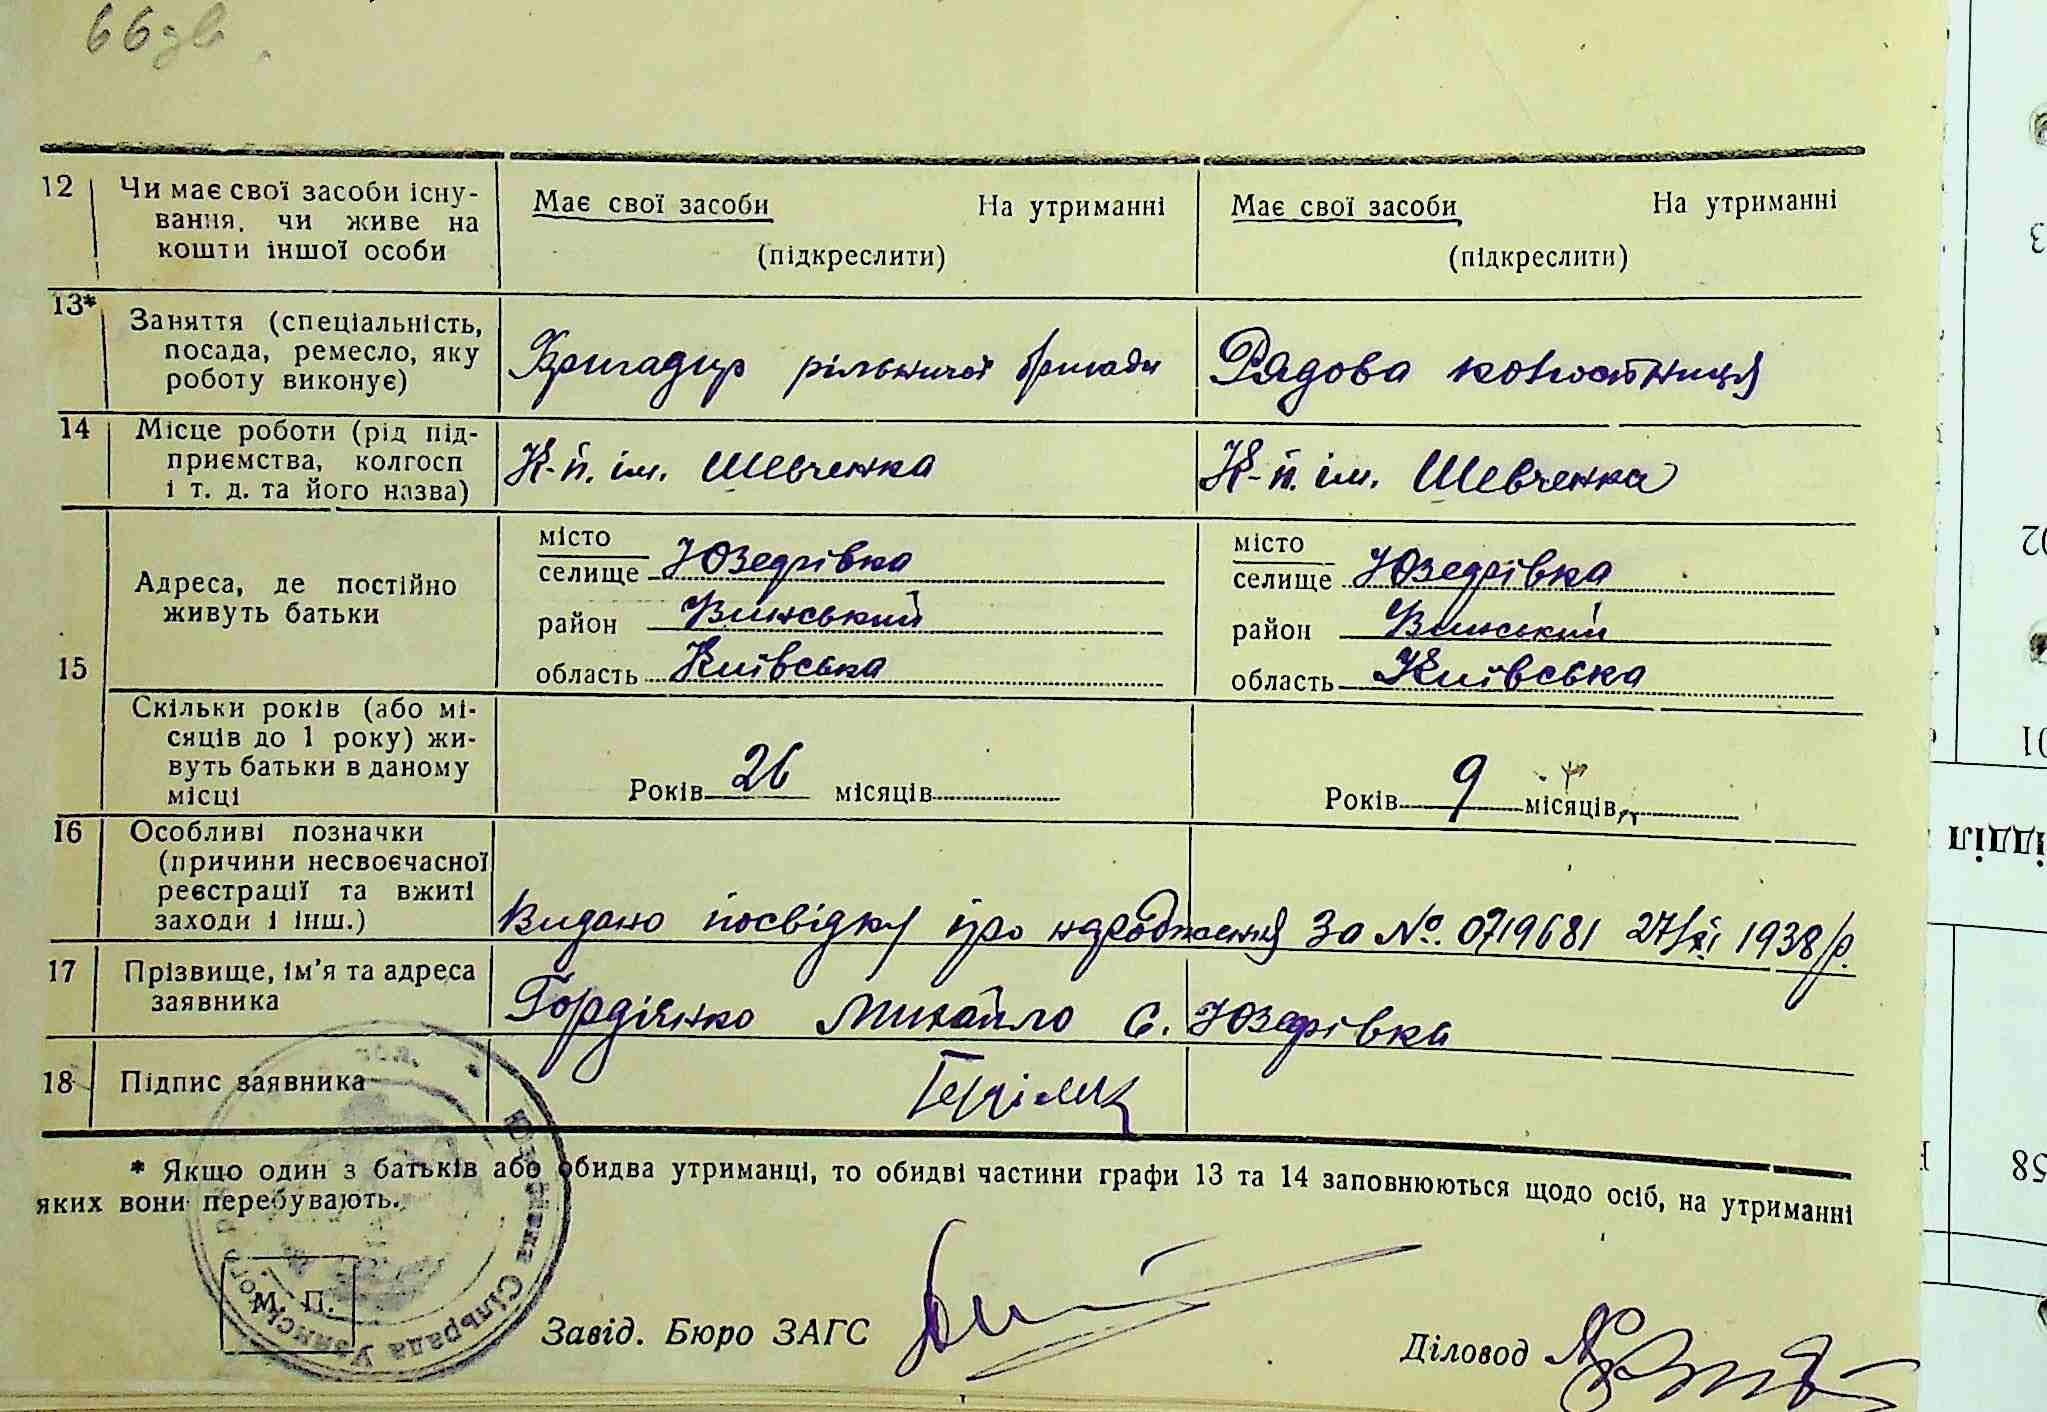 66 зв.
12 Чи має свої засоби існу-
вання, чи живе на
кошти іншої особи
Має свої засоби На утриманні
(підкреслити)
Має свої засоби На утриманні
(підкреслити)
13* Заняття (спеціальність,
посада, ремесло, яку
роботу виконує)
Бригадир рільничої бригади
Рядова
14 Місце роботи (рід під-
приємства, колгосп
і т. д. та його назва)
К-п. ім. Шевченка
К-п. ім. Шевченка
15
Адреса, де постійно
живуть батьки
місто
селище Юзефівка
район
область Київська
місто
селище Юзефівка
район
область Київська
Скільки років (або мі-
сяців до 1 року) жи-
вуть батьки в даному
місці
Років 26 місяців
Років 9 місяців
16 Особливі позначки
(причини несвоєчасної
реєстрації та вжиті
заходи і інш.)
Видано посвідку про народження За №. 0719681 27/XI 1938/р.
17 Прізвище, ім'я та адреса
заявника
Гордієнко Михайло С. Юзефівка
18 Підпис заявника
* Якщо один з батьків або обидва утриманці, то обидві частини графи 13 та 14 заповнюються щодо осіб, на утриманні
яких вони перебувають.
М. П.
Сільрада Узинського
Завід. Бюро ЗАГС
Діловод